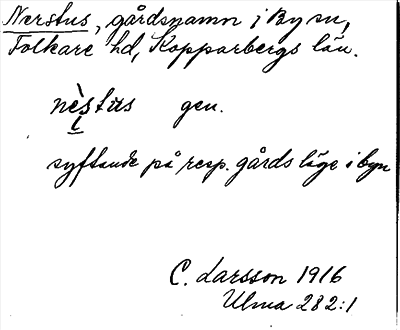 Nerstus, gårdsnamn i By sn,
Folkare hd, Kopparbergs län.
gen.
syftande på resp. gårds läge i byn
C. Larsson 1916
Ulma 282:1